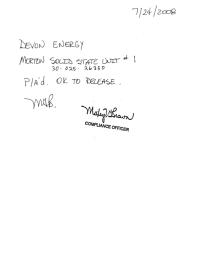 7/24/2008
DEVON ENERGY
MORTON SOLID STATE UNIT # 1
30-025-26380
P/A'd. OK TO RELEASE.
MWB.
COMPLIANCE OFFICER